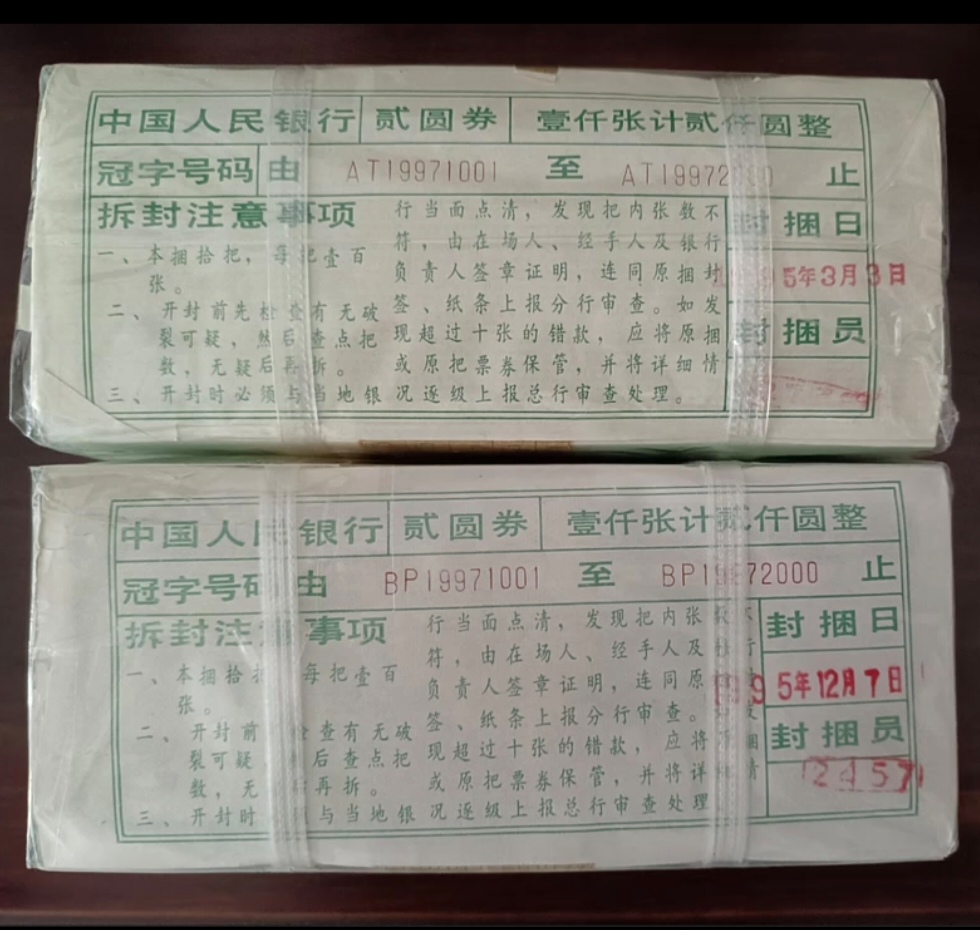 中国人民银行 贰圆券 壹仟张计贰仟圆整
冠字号码 由 AT19971001 至 AT19972 0 止
拆封注意事项
一、本捆拾把，每把壹百
张。
二、开封前先检查有无破
裂可疑，然后查点把
数，无疑后再拆。
三、开封时必须与当地银
行当面点清，发现把内张数不
符，由在场人、经手人及银行
负责人签章证明，连同原捆封
签、纸条上报分行审查。如发
现超过十张的错款，应将原捆
或原把票券保管，并将详细情
况逐级上报总行审查处理。
封捆日
5年3月3日
封捆员
中国人民银行 贰圆券 壹仟张计贰仟圆整
冠字号码 由 BP19971001 至 BP19972000 止
拆封注意事项
一、本捆拾把 每把壹百
张。
二、开封前 检查有无破
裂可疑 后查点把
数，无 再拆。
三、开封时 与当地银
行当面点清，发现把内张数不
符，由在场人、经手人及银行
负责人签章证明，连同原
签、纸条上报分行审查。
现超过十张的错款，应将原捆
或原把票券保管，并将详细情
况逐级上报总行审查处理
封捆日
1995年12月7日
封捆员
2457